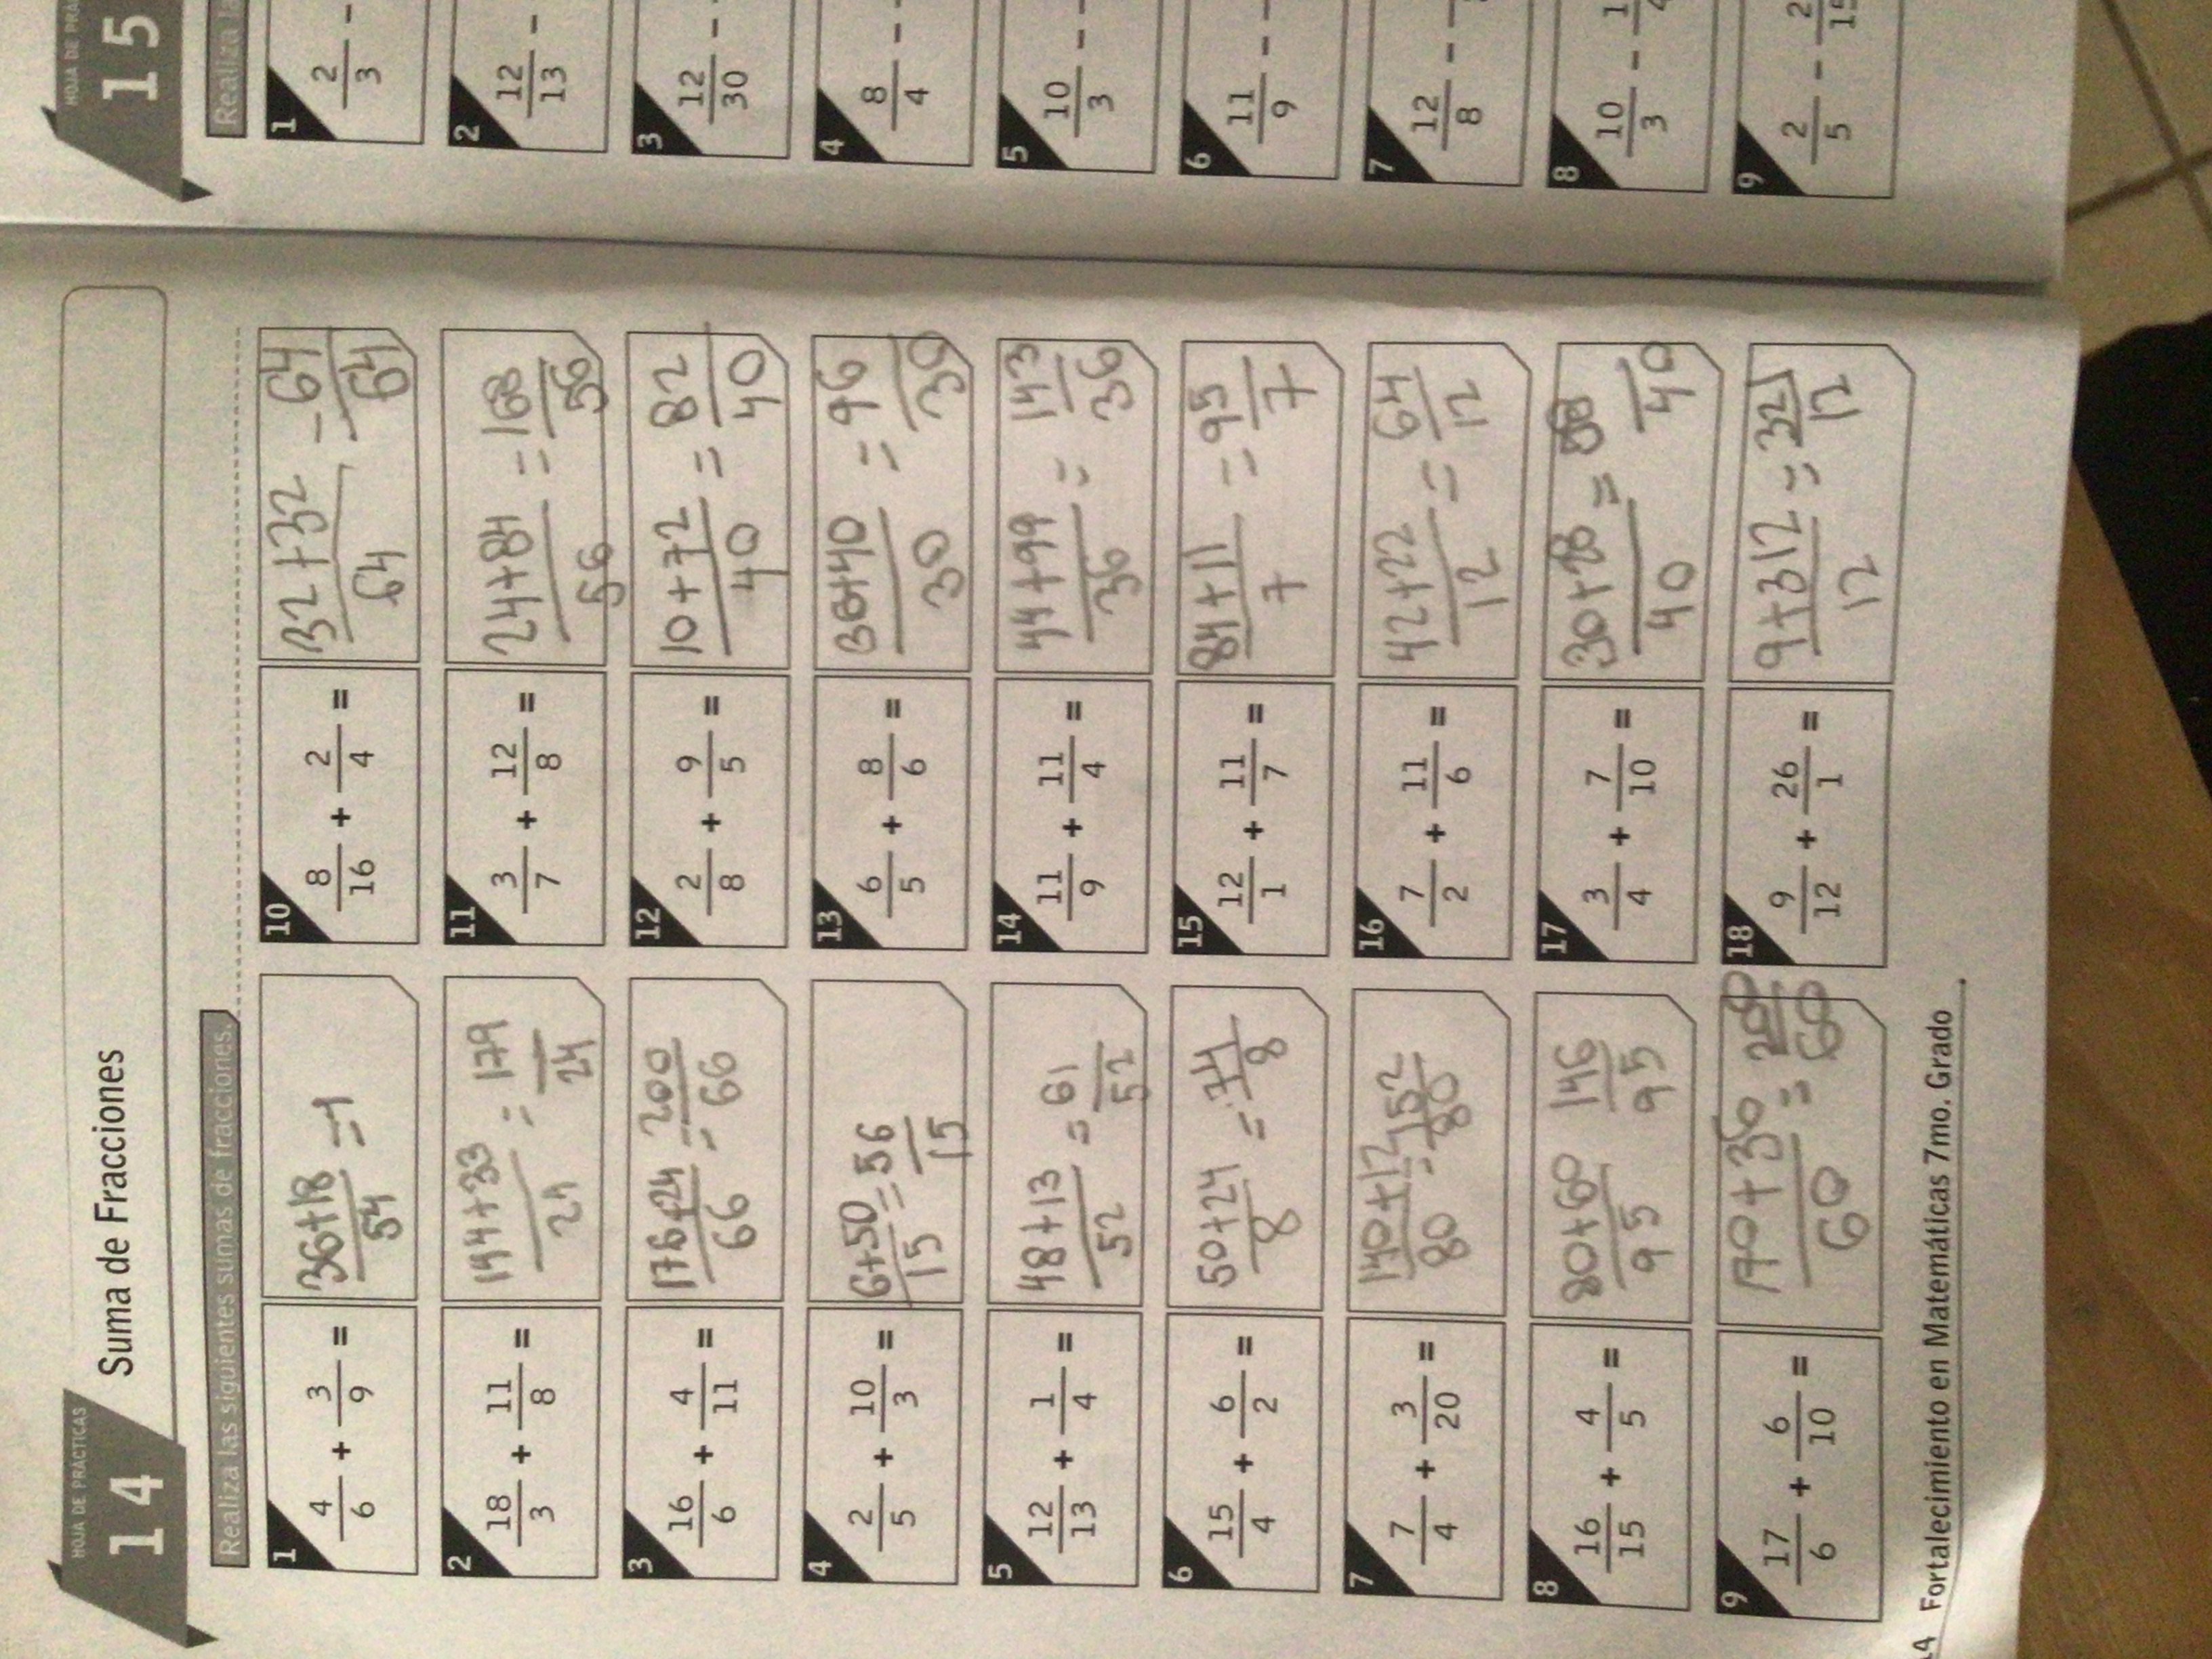 HOJA DE PRÁCTICAS
14
Suma de Fracciones
Realiza las siguientes sumas de fracciones.
1
4/6 + 3/9 =
36+18/54 = 1
2
18/3 + 11/8 =
144+33/24 = 179/24
3
16/6 + 4/11 =
176+24/66 = 200/66
4
2/5 + 10/3 =
6+50/15 = 56/15
5
12/13 + 1/4 =
48+13/52 = 61/52
6
15/4 + 6/2 =
50+24/8 = 74/8
7
7/4 + 3/20 =
140+12/80 = 152/80
8
16/15 + 4/5 =
80+60/95 146/95
9
17/6 + 6/10 =
170+36/60 =
10
8/16 + 2/4 =
32+32/64 - 64/64
11
3/7 + 12/8 =
24+84/56 = 168/56
12
2/8 + 9/5 =
10+72/40 = 82/40
13
6/5 + 8/6 =
40/30 = 96/30
14
11/9 + 11/4 =
44+99/36 = 143/36
15
12/1 + 11/7 =
84+11/7 = 95/7
16
7/2 + 11/6 =
42+22/12 = 64/12
17
3/4 + 7/10 =
30+28/40 = /40
18
9/12 + 26/1 =
9+312/12 = 321/12
Fortalecimiento en Matemáticas 7mo. Grado
HOJA DE PRÁ
15
Realiza l
1
2/3 -
2
12/13 -
3
12/30 -
4
8/4 -
5
10/3 -
6
11/9 -
7
12/8 -
8
10/3 -
9
2/5 -